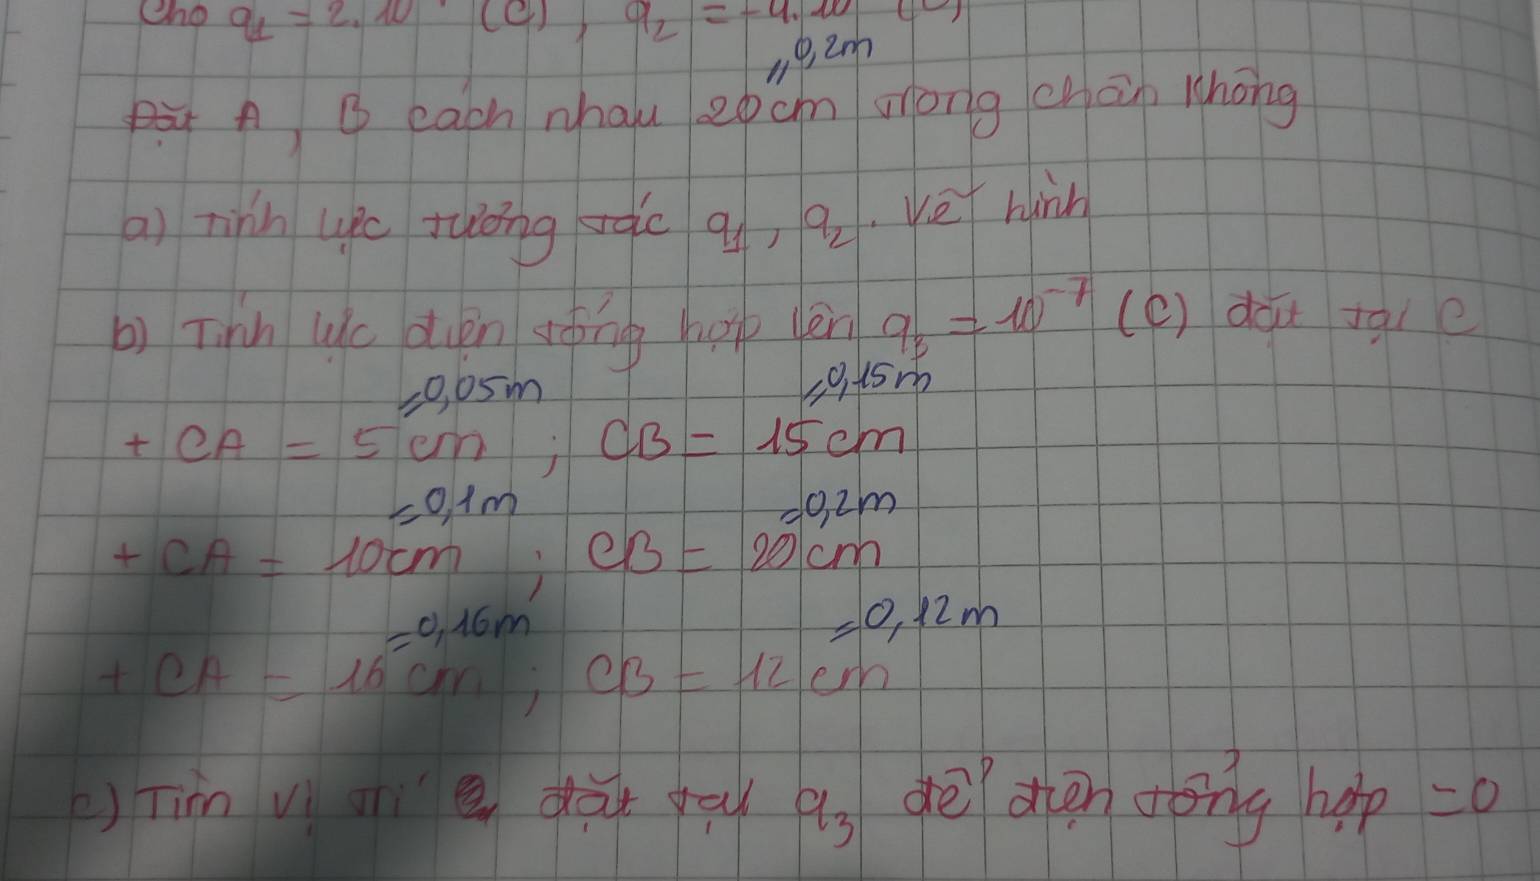 Cho q₁ = 2.10 (C), q₂ = -4.10
= 0,2m
Đặt A, B cách nhau 20cm trong chân không
a) Tính lực tương tác q₁, q₂. Vẽ hình
b) Tính lực điện tổng hợp lên q₃ = 10⁻⁷ (C) đặt tại C
= 0,05m = 0,15m
+ CA = 5cm ; CB = 15cm
= 0,1m = 0,2m
+ CA = 10cm ; CB = 20cm
= 0,16m = 0,12m
+ CA = 16cm ; CB = 12cm
c) Tìm vị trí đặt tại q₃ để điện tổng hợp = 0